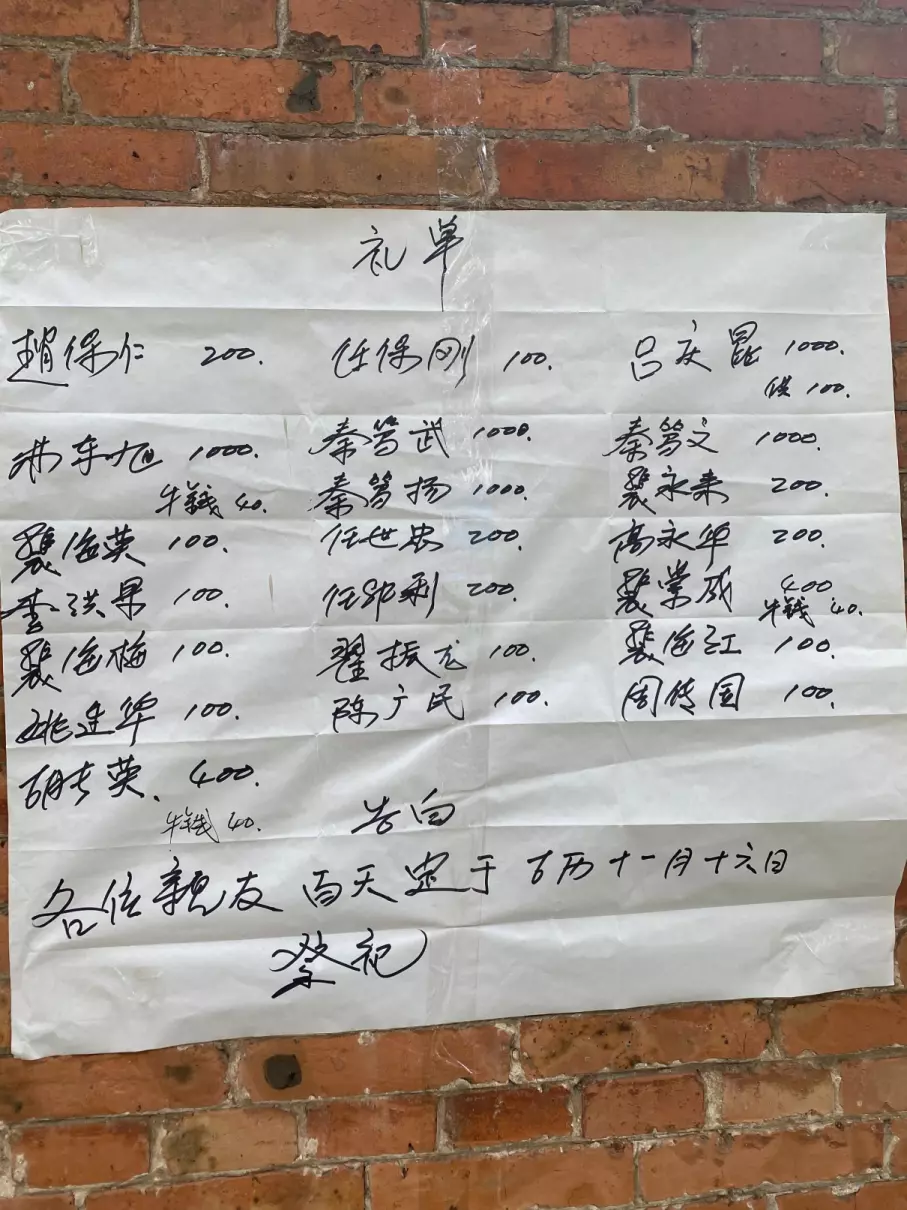 礼单
趙保仁 200. 任保刚 100. 吕庆昆 1000.
供 100.
东旭 1000. 秦笃武 1000. 秦笃文 1000.
牛錢 40. 秦笃扬 1000. 裴永来 200.
裴海英 100. 任世忠 200. 高永华 200.
李洪果 100. 任 利 200. 裴荣成 400
牛錢 40.
裴海梅 100. 翟振龙 100. 裴海江 100.
姚连华 100. 陈广民 100. 周传国 100.
胡专英、400.
牛錢 40. 告白
各位親友 百天定于 古历十一月十六日
祭祀